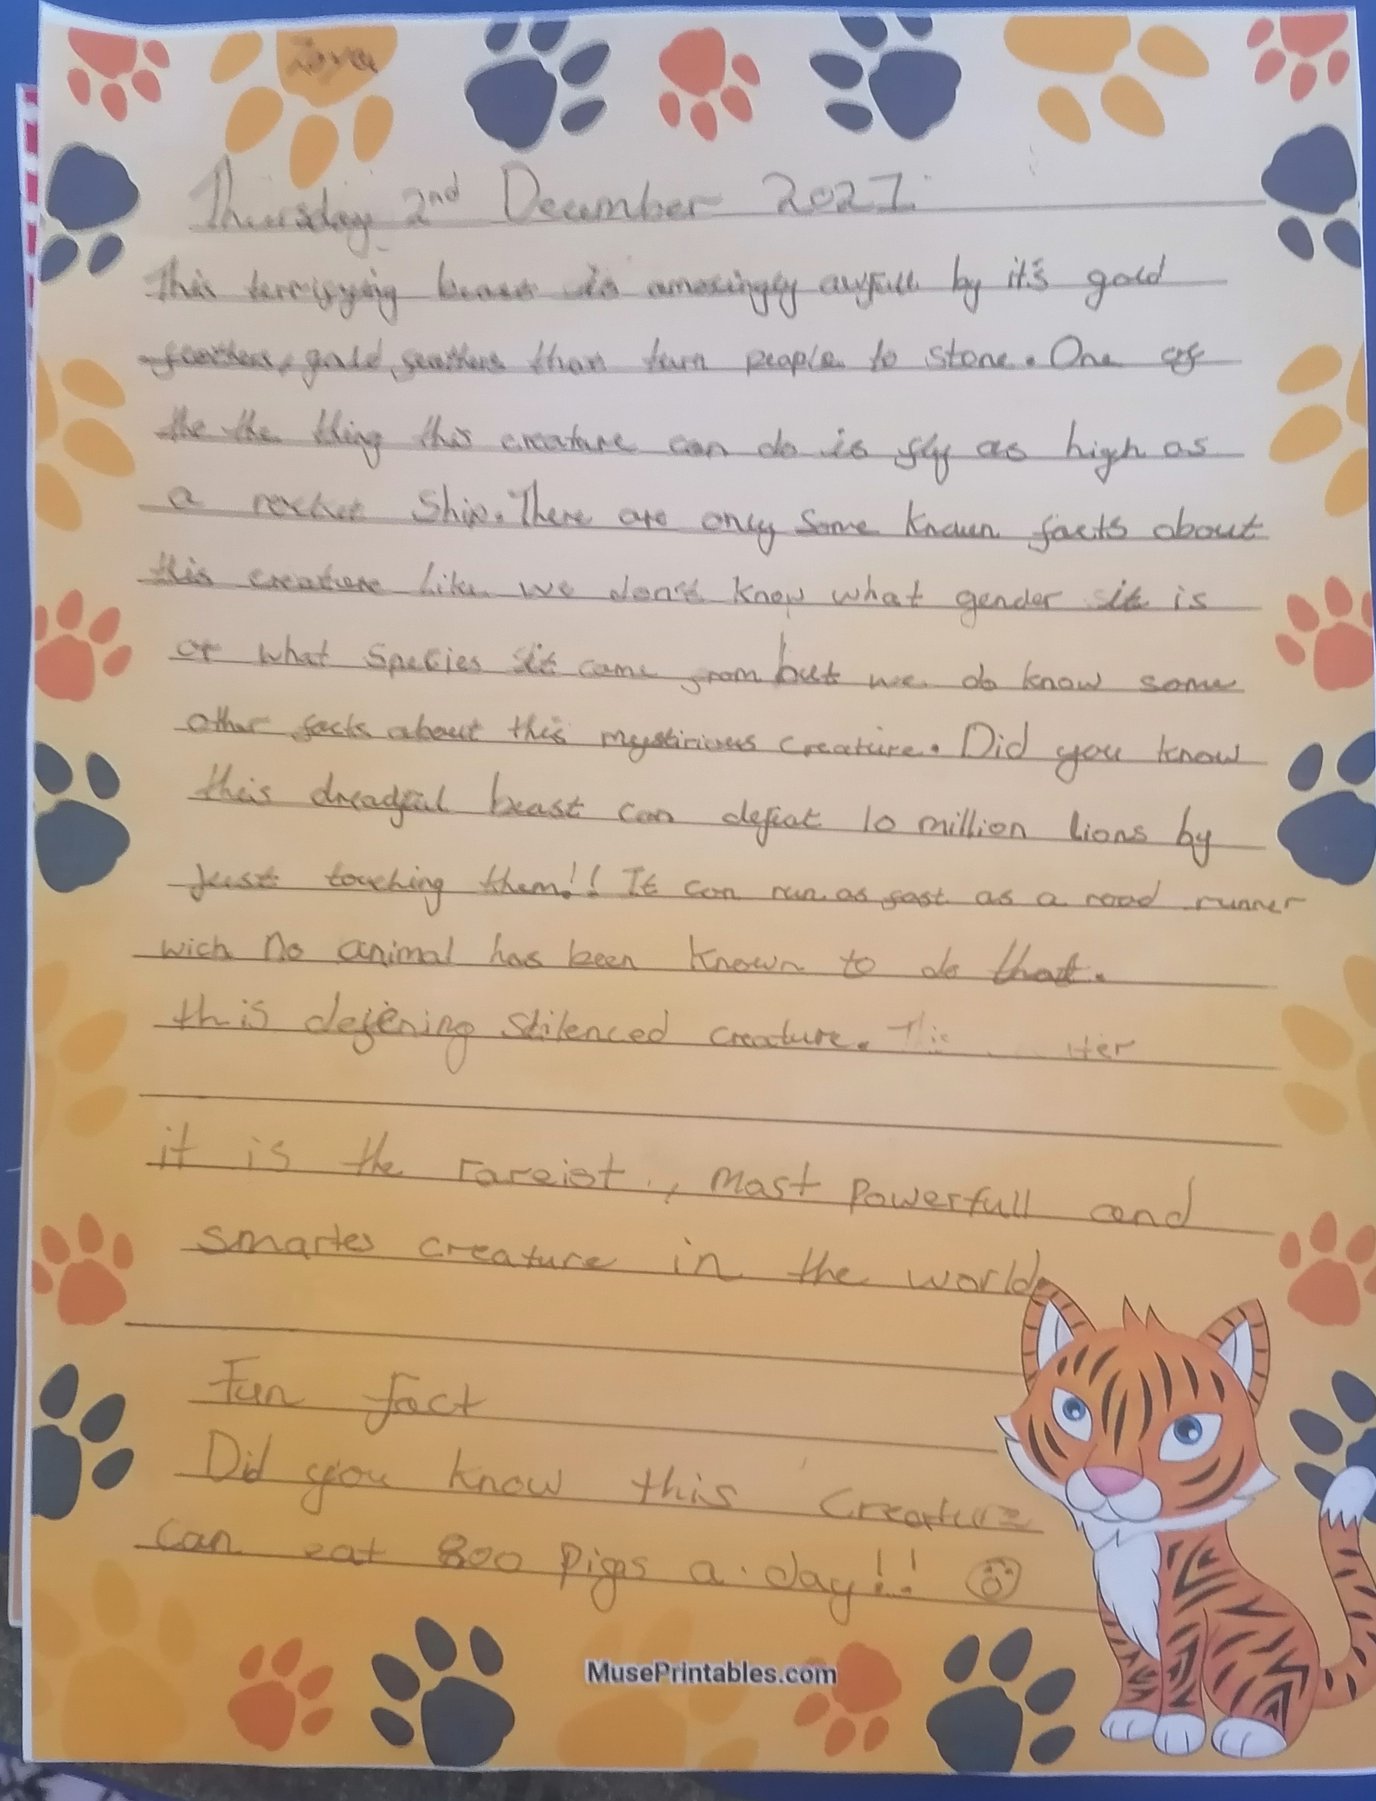 Thursday 2nd December 2021
This terrifying beast is amazingly awfull by it's gold
feathers, gold feathers than turn people to stone. One of
the the thing this creature can do is fly as high as
a rocket ship. There are only some known facts about
this creature like we don't know what gender it is
or what species it came from but we do know some
other facts about this mystirious creature. Did you know
this dreadful beast can defeat 10 million lions by
just touching them!! It can run as fast as a road runner
wich no animal has been known to do that.
this defening stilenced creature.
it is the rareist, most powerfull and
smartes creature in the world
Fun fact
Did you know this creature
can eat 800 pigs a day!!
MusePrintables.com